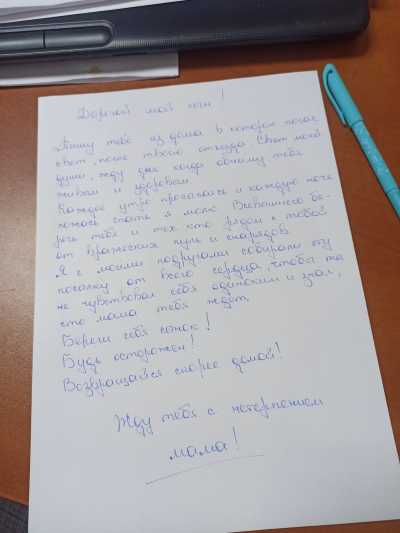 Дорогой мой сын!
Пишу тебе из дома в котором погас
свет, после твоего отъезда. Свет моей
души, жду дня когда обниму тебя
живым и здоровым.
Каждое утро просыпаясь и каждую ночь
ложась спать я молю Всевышнего бе-
речь тебя и тех кто рядом с тобой
от вражеских пуль и снарядов.
Я с моими подругами собирали эту
посылку от всего сердца, чтобы ты
не чувствовал себя одиноким и знал,
что мама тебя ждёт.
Береги себя сынок!
Будь осторожен!
Возвращайся скорее домой!
Жду тебя с нетерпением
мама!